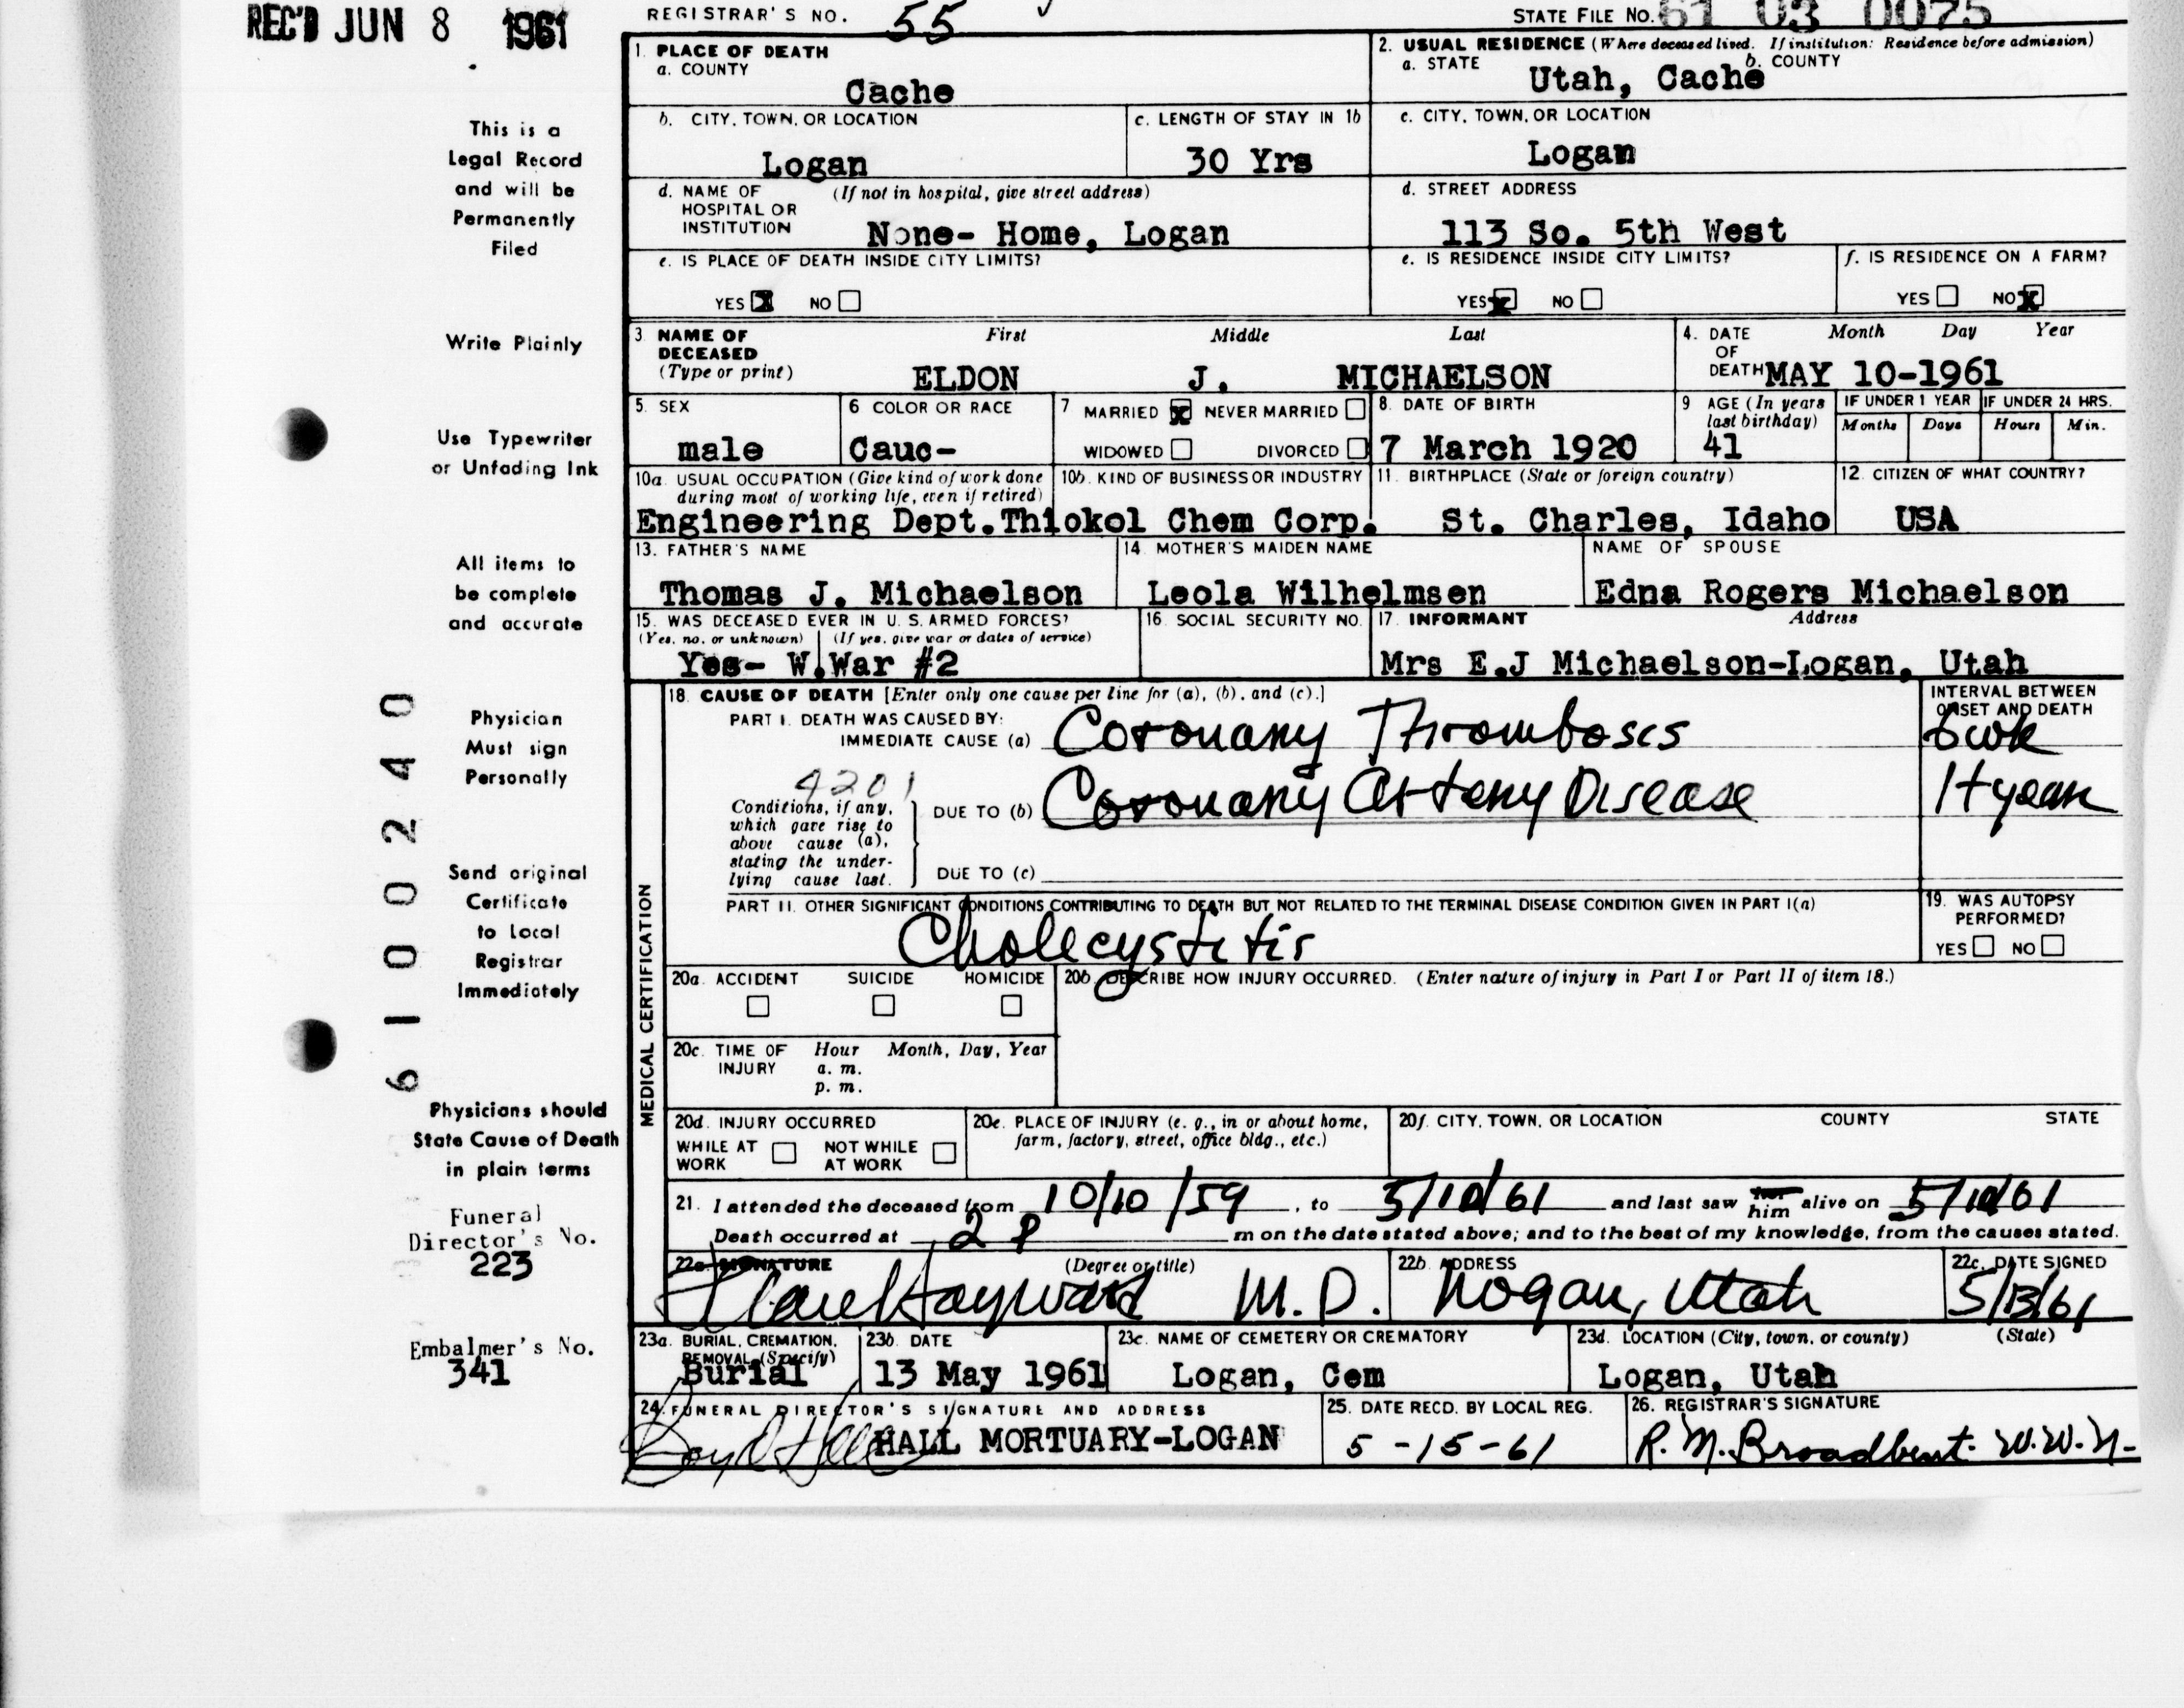 REC'D JUN 8 1961
REGISTRAR'S NO. 55
STATE FILE NO. 61 03 0075
This is a
Legal Record
and will be
Permanently
Filed
Write Plainly
Use Typewriter
or Unfading Ink
All items to
be complete
and accurate
Physician
Must sign
Personally
Send original
Certificate
to Local
Registrar
Immediately
Physicians should
State Cause of Death
in plain terms
Funeral
Director's No.
223
Embalmer's No.
341
6100240
1. PLACE OF DEATH
a. COUNTY
Cache
2. USUAL RESIDENCE (Where deceased lived. If institution: Residence before admission)
a. STATE b. COUNTY
Utah, Cache
b. CITY, TOWN, OR LOCATION
Logan
c. LENGTH OF STAY IN 1b
30 Yrs
c. CITY, TOWN, OR LOCATION
Logan
d. NAME OF (If not in hospital, give street address)
HOSPITAL OR
INSTITUTION
None- Home, Logan
d. STREET ADDRESS
113 So. 5th West
e. IS PLACE OF DEATH INSIDE CITY LIMITS?
YES X NO
e. IS RESIDENCE INSIDE CITY LIMITS?
YES X NO
f. IS RESIDENCE ON A FARM?
YES NO X
3. NAME OF First Middle Last
DECEASED
(Type or print)
ELDON J. MICHAELSON
4. DATE Month Day Year
OF
DEATH MAY 10-1961
5. SEX
male
6 COLOR OR RACE
Cauc-
7 MARRIED X NEVER MARRIED
WIDOWED DIVORCED
8. DATE OF BIRTH
7 March 1920
9 AGE (In years
last birthday)
41
IF UNDER 1 YEAR IF UNDER 24 HRS.
Months Days Hours Min.
10a. USUAL OCCUPATION (Give kind of work done
during most of working life, even if retired)
10b. KIND OF BUSINESS OR INDUSTRY
Engineering Dept.Thiokol Chem Corp.
11. BIRTHPLACE (State or foreign country)
St. Charles, Idaho
12. CITIZEN OF WHAT COUNTRY?
USA
13. FATHER'S NAME
Thomas J. Michaelson
14. MOTHER'S MAIDEN NAME
Leola Wilhelmsen
NAME OF SPOUSE
Edna Rogers Michaelson
15. WAS DECEASED EVER IN U. S. ARMED FORCES?
(Yes, no, or unknown) (If yes, give war or dates of service)
Yes- W.War #2
16. SOCIAL SECURITY NO.
17. INFORMANT Address
Mrs E.J Michaelson-Logan, Utah
MEDICAL CERTIFICATION
18. CAUSE OF DEATH [Enter only one cause per line for (a), (b), and (c).]
PART I. DEATH WAS CAUSED BY:
IMMEDIATE CAUSE (a) Coronary Thrombosis
INTERVAL BETWEEN
ONSET AND DEATH
6 wk
4201
Conditions, if any,
which gave rise to
above cause (a),
stating the under-
lying cause last.
DUE TO (b) Coronary Artery Disease
1+ year
DUE TO (c)
PART II. OTHER SIGNIFICANT CONDITIONS CONTRIBUTING TO DEATH BUT NOT RELATED TO THE TERMINAL DISEASE CONDITION GIVEN IN PART I(a)
Cholecystitis
19. WAS AUTOPSY
PERFORMED?
YES NO
20a. ACCIDENT SUICIDE HOMICIDE
20b. DESCRIBE HOW INJURY OCCURRED. (Enter nature of injury in Part I or Part II of item 18.)
20c. TIME OF Hour Month, Day, Year
INJURY a. m.
p. m.
20d. INJURY OCCURRED
WHILE AT NOT WHILE
WORK AT WORK
20e. PLACE OF INJURY (e. g., in or about home,
farm, factory, street, office bldg., etc.)
20f. CITY, TOWN, OR LOCATION COUNTY STATE
21. I attended the deceased from 10/10/59, to 5/10/61 and last saw her him alive on 5/10/61
Death occurred at 2 P m on the date stated above; and to the best of my knowledge, from the causes stated.
22a. SIGNATURE (Degree or title)
Hayward M.D.
22b. ADDRESS
Logan, Utah
22c. DATE SIGNED
5/13/61
23a. BURIAL, CREMATION,
REMOVAL (Specify)
Burial
23b. DATE
13 May 1961
23c. NAME OF CEMETERY OR CREMATORY
Logan, Cem
23d. LOCATION (City, town, or county) (State)
Logan, Utah
24. FUNERAL DIRECTOR'S SIGNATURE AND ADDRESS
Boyd Hall HALL MORTUARY-LOGAN
25. DATE RECD. BY LOCAL REG.
5-15-61
26. REGISTRAR'S SIGNATURE
R. M. Broadbent. W.W.N-